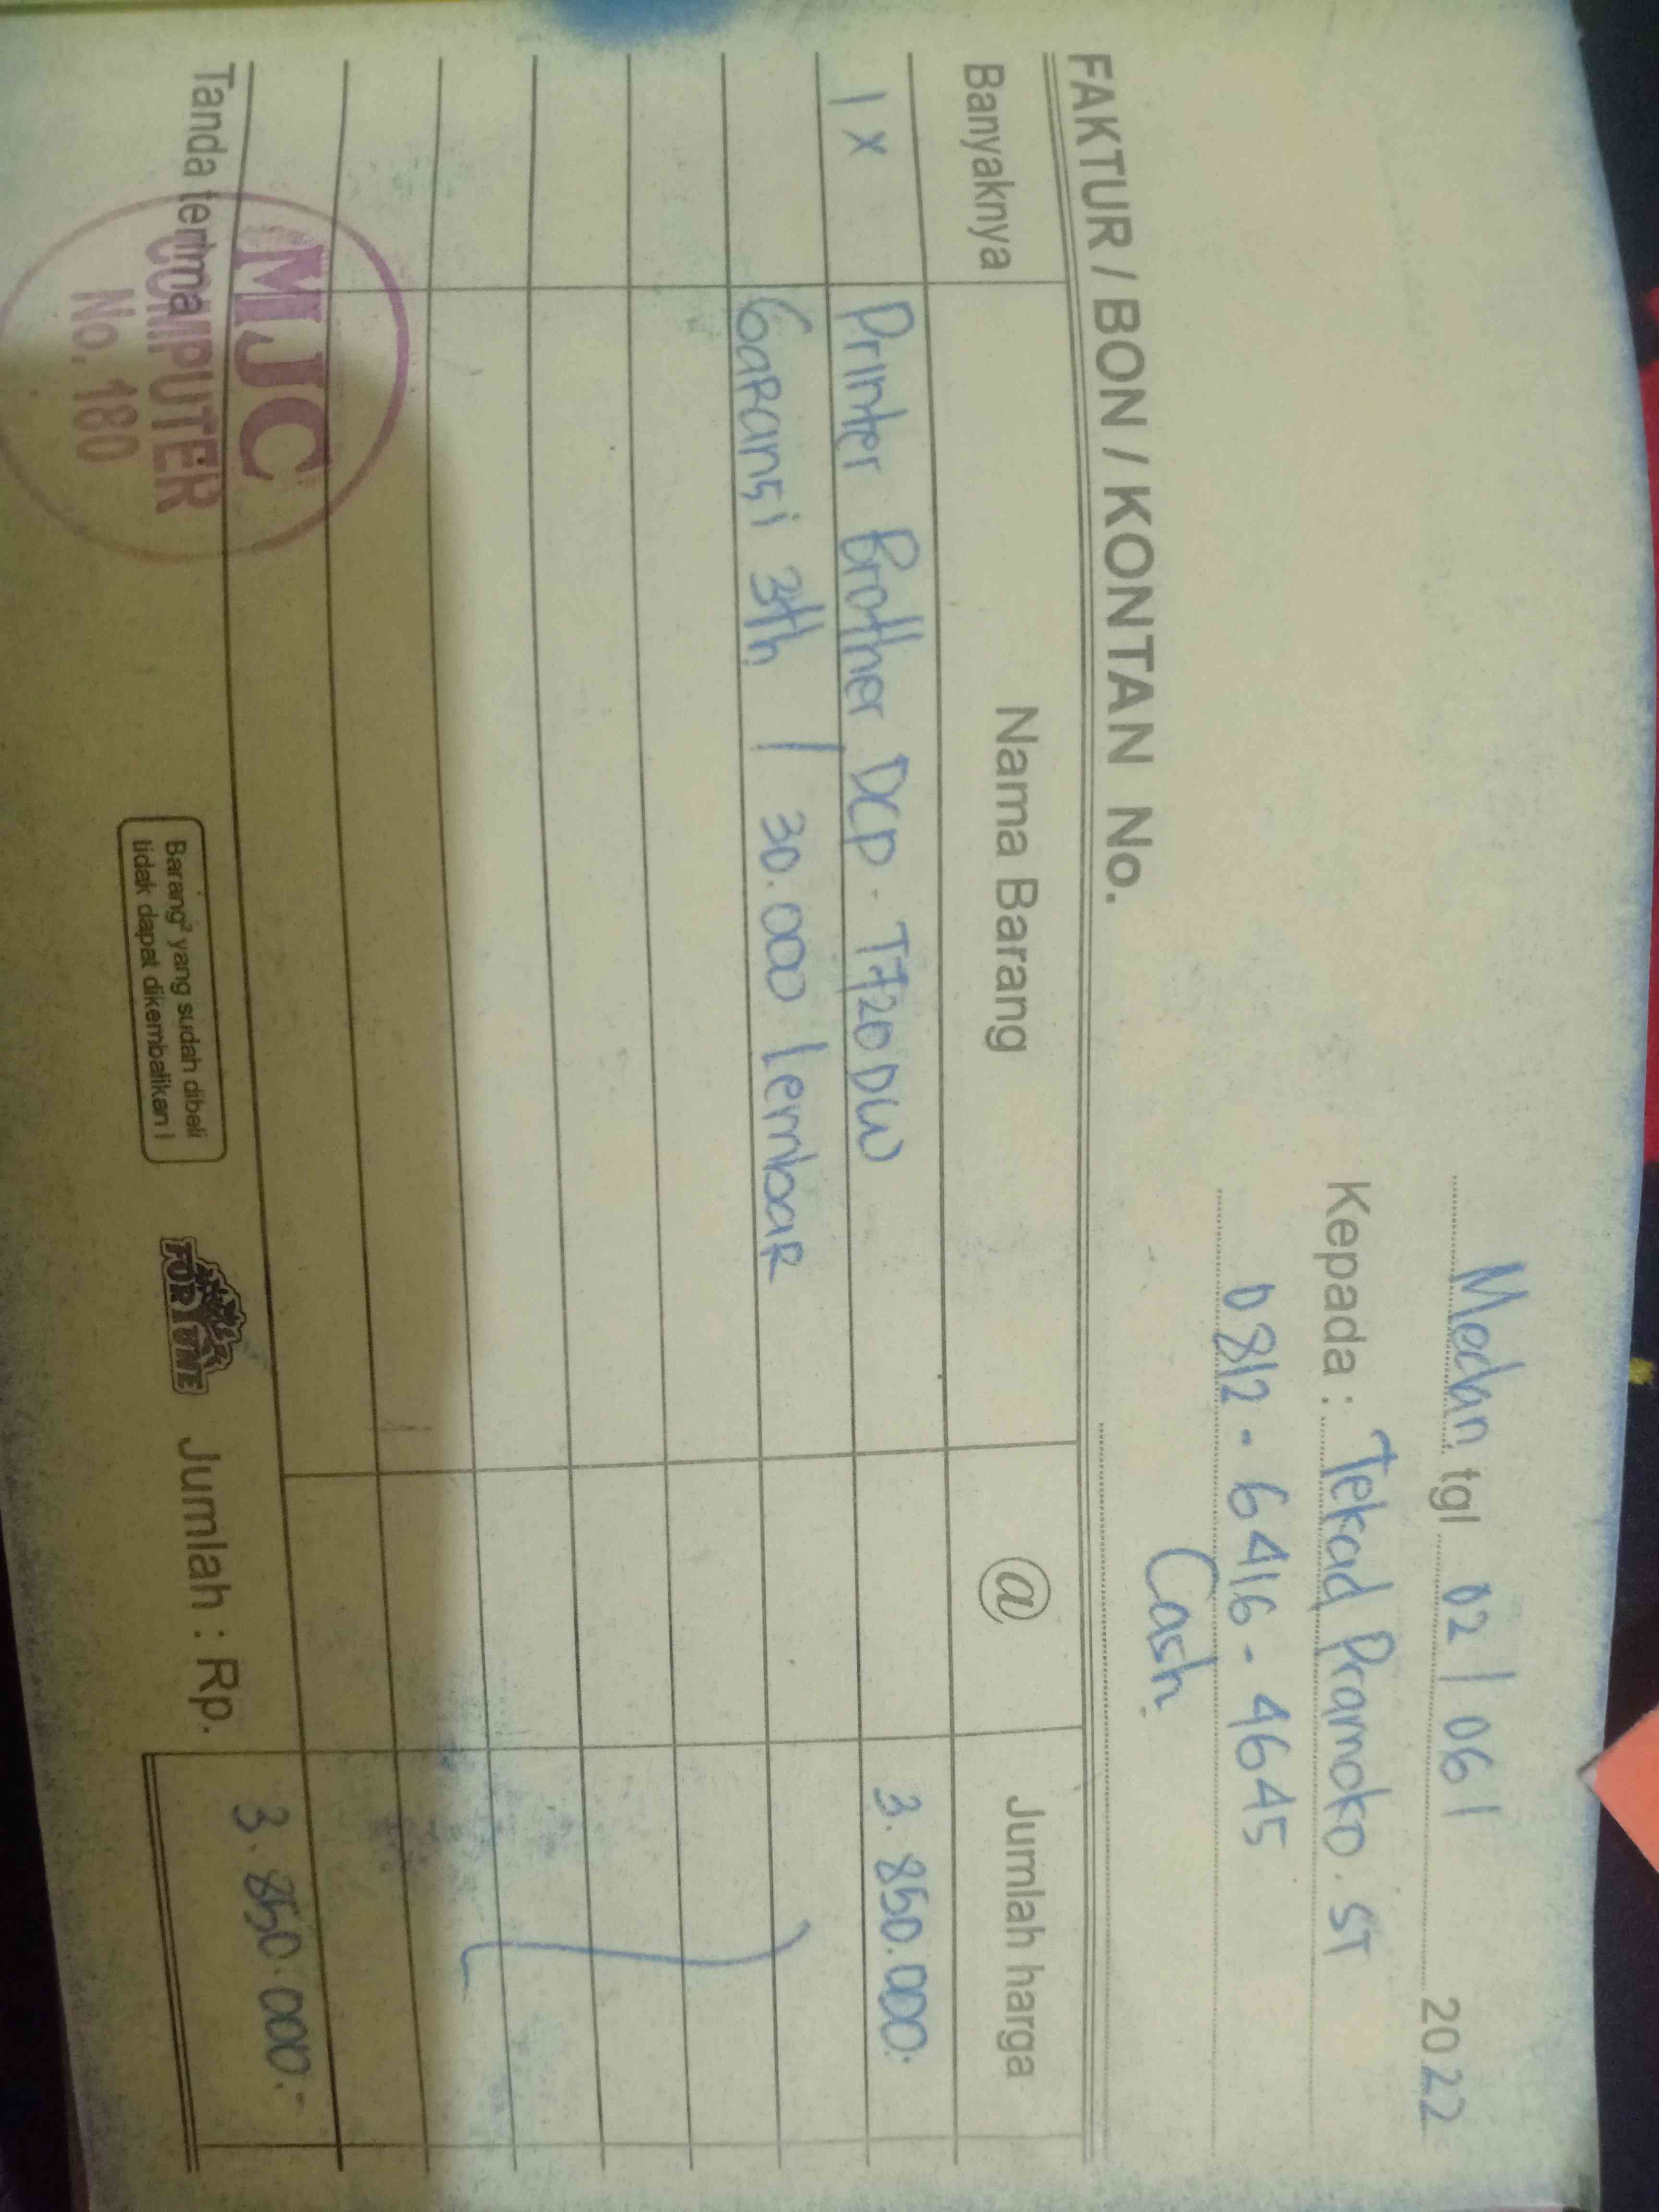 Medan, tgl 02 / 06 / 2022
Kepada : Tekad Pramoko. ST
0812 - 6416 - 4645
Cash
FAKTUR / BON / KONTAN No.
Banyaknya Nama Barang @ Jumlah harga
1 x Printer Brother DCP - T720DW 3. 850.000.
Garansi 3th / 30.000 lembar
Tanda terima
MJC
COMPUTER
No. 180
Barang² yang sudah dibeli
tidak dapat dikembalikan !
FORTUNE
Jumlah : Rp. 3. 850.000.-